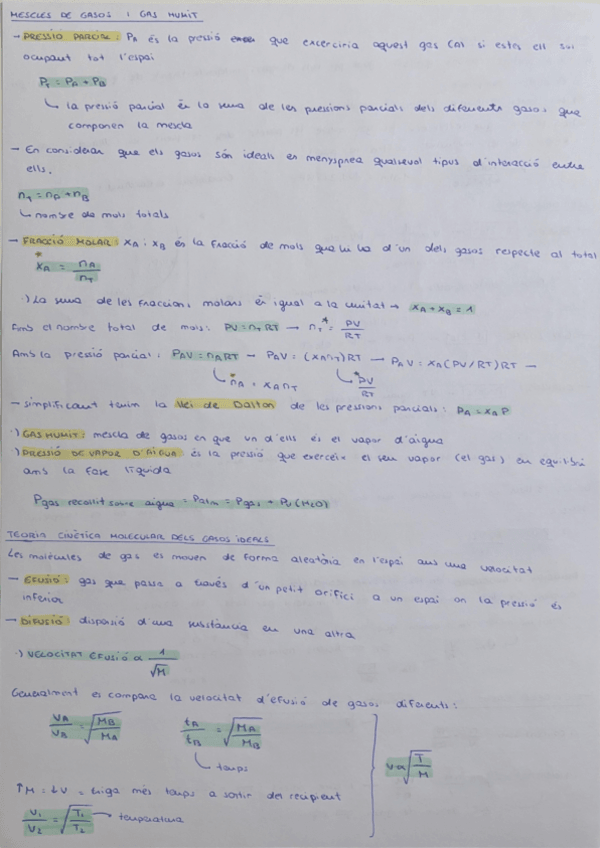 MESCLES DE GASOS I GAS HUMIT
→ PRESSIÓ PARCIAL: PA és la pressió que exerceria aquest gas (A) si estes ell sol
ocupant tot l'espai
PT = PA + PB
↳ la pressió parcial és la suma de les pressions parcials dels diferents gasos que
componen la mescla
→ En considerar que els gasos són ideals es menysprea qualsevol tipus d'interacció entre
ells.
nT = nA + nB
↳ nombre de mols totals
→ FRACCIÓ MOLAR: XA i XB és la fracció de mols que hi ha d'un dels gasos respecte al total
XA = nA / nT
·) La suma de les fraccions molars és igual a la unitat → XA + XB = 1
Amb el nombre total de mols: PV = nT RT → nT* = PV / RT
Amb la pressió parcial: PAV = nART → PAV = (XAnT)RT → PAV = XA(PV/RT)RT →
↳ nA = XA nT ↳ *PV / RT
→ simplificant tenim la Llei de Dalton de les pressions parcials: PA = XA P
·) GAS HUMIT: mescla de gasos en que un d'ells és el vapor d'aigua
·) PRESSIÓ DE VAPOR D'AIGUA: és la pressió que exerceix el seu vapor (el gas) en equilibri
amb la fase líquida
Pgas recollit sobre aigua = Patm = Pgas + Pv(H2O)
TEORIA CINÈTICA MOLECULAR DELS GASOS IDEALS
Les molècules de gas es mouen de forma aleatòria en l'espai amb una velocitat
→ EFUSIÓ: gas que passa a través d'un petit orifici a un espai on la pressió és
inferior
→ DIFUSIÓ: dispersió d'una substància en una altra
·) VELOCITAT EFUSIÓ α 1 / √M
Generalment es compara la velocitat d'efusió de gasos diferents:
VA / VB = √(MB / MA) tA / tB = √(MA / MB)
↳ temps
V α √(T / M)
↑M = ↓V = triga més temps a sortir del recipient
V1 / V2 = √(T1 / T2) → temperatura